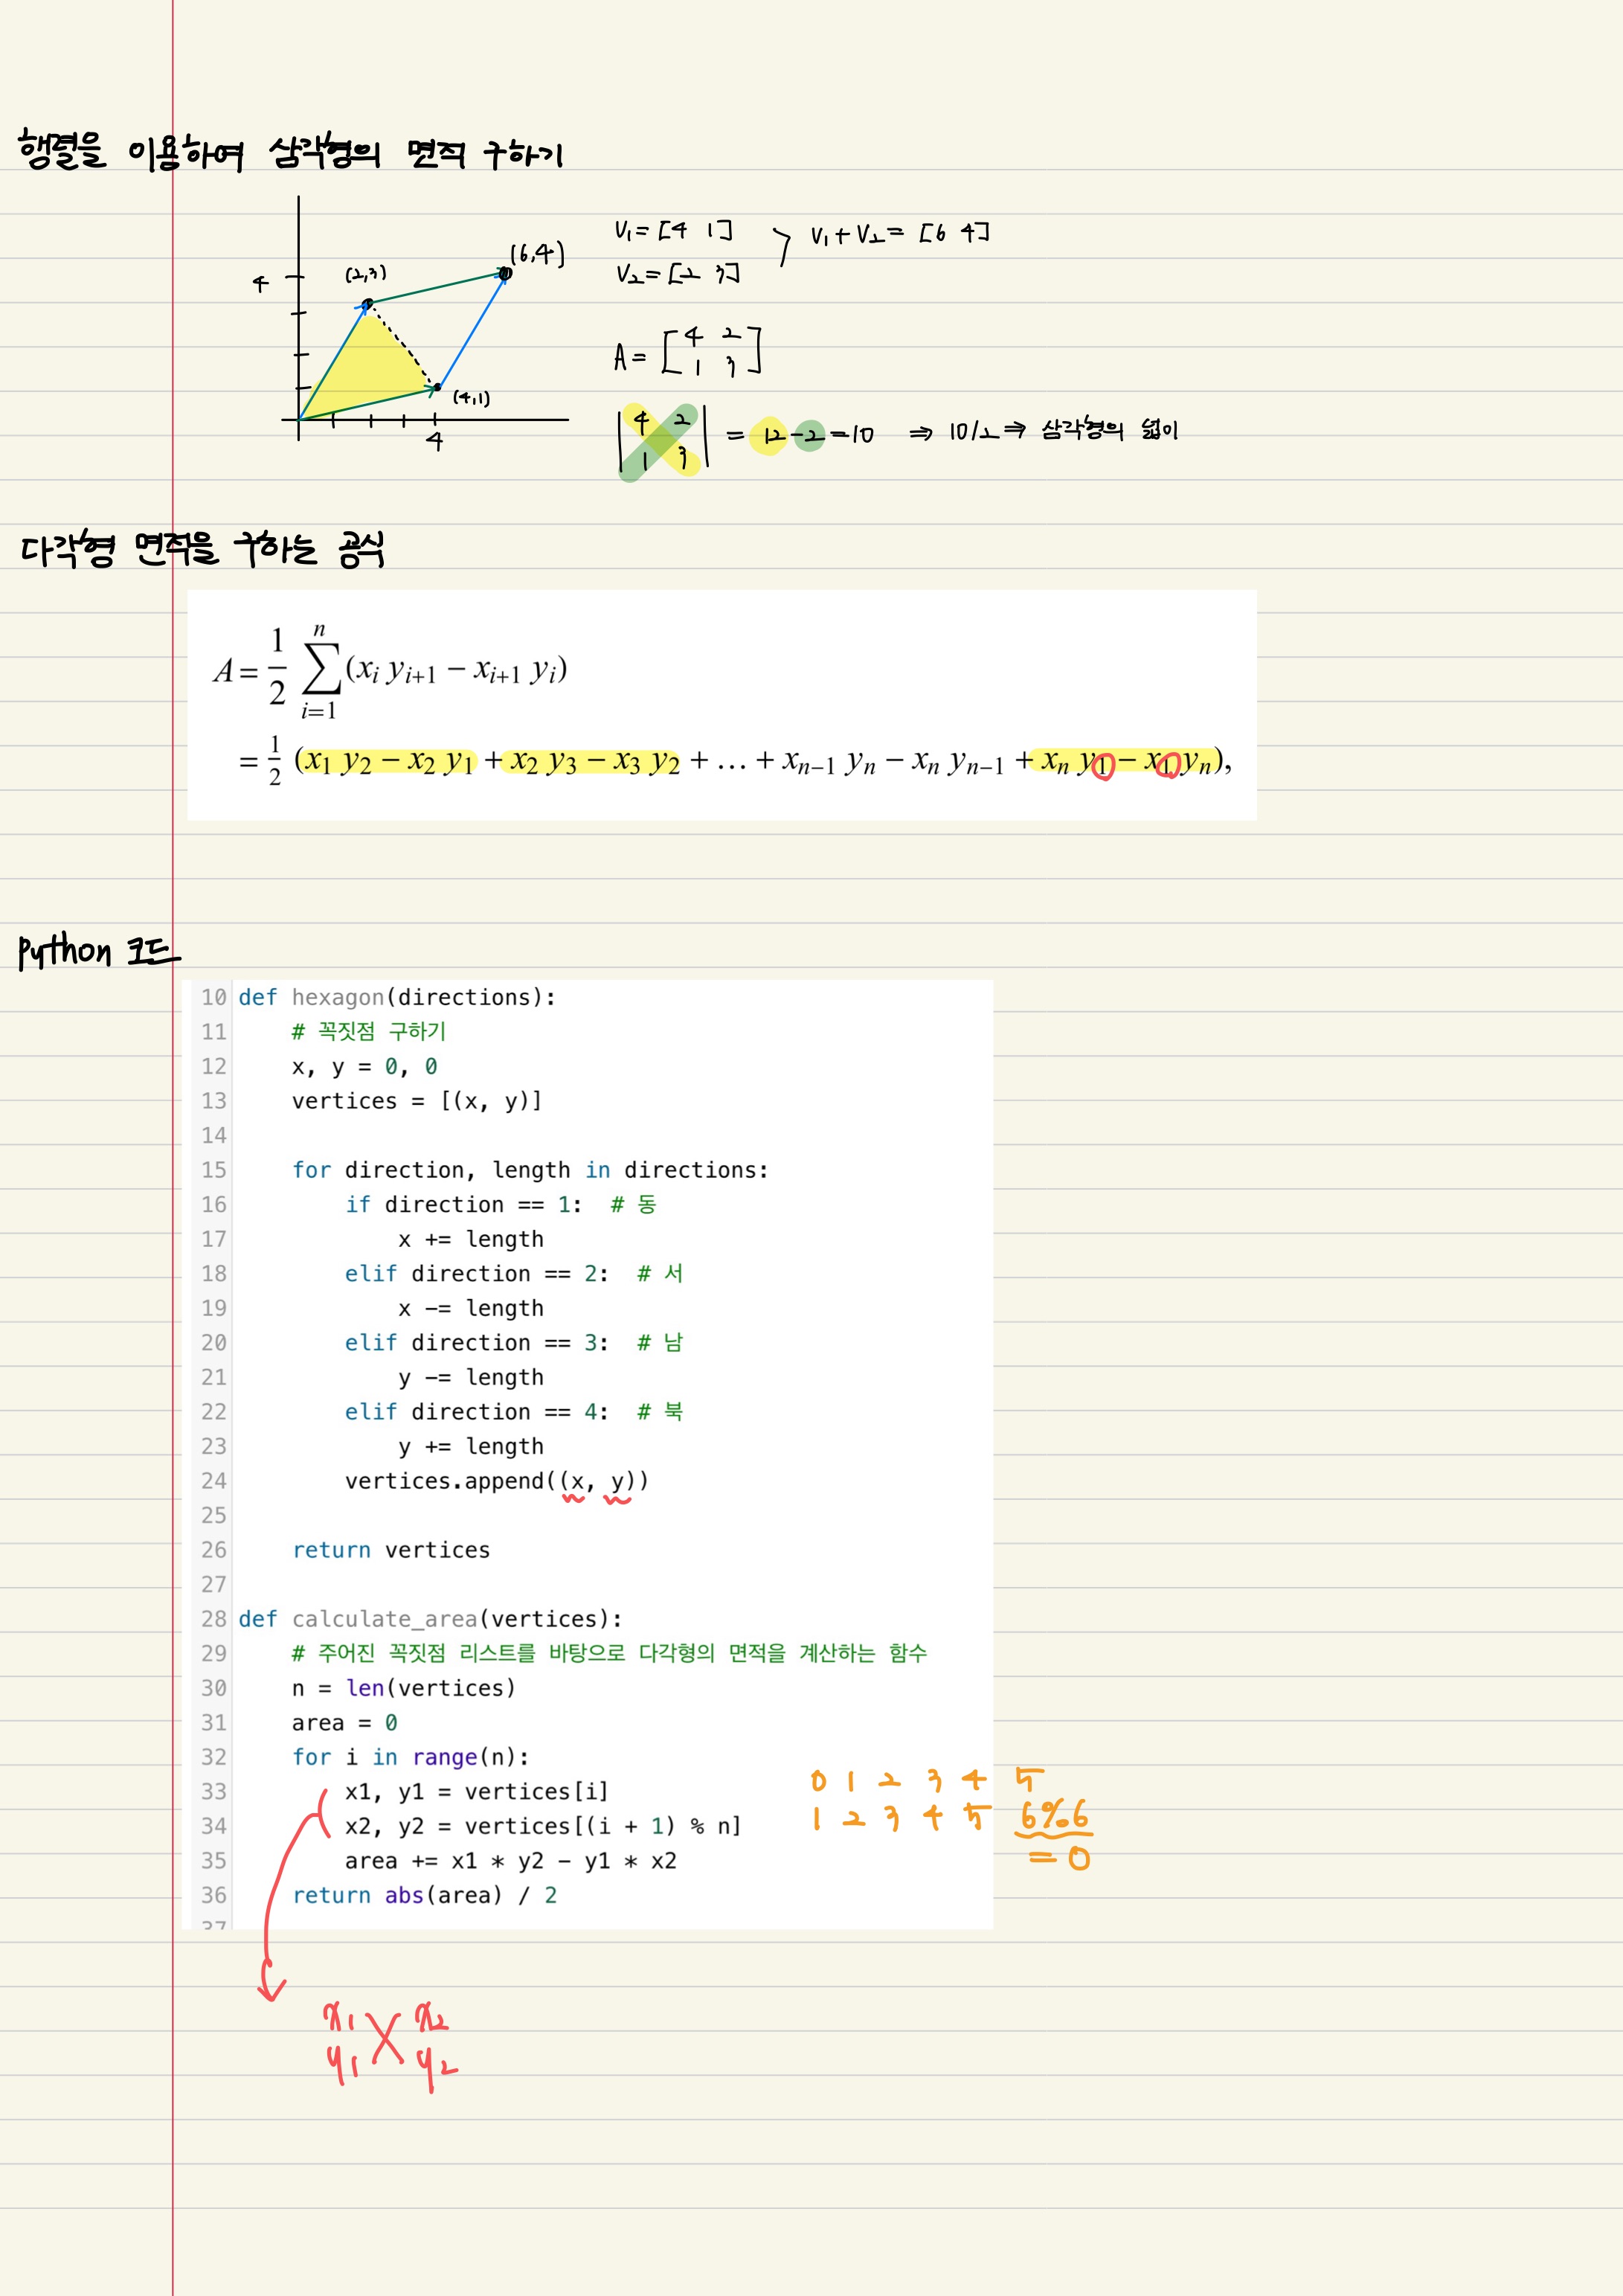 행렬을 이용하여 삼각형의 면적 구하기
V₁ = [4 1]
V₂ = [2 3]
V₁ + V₂ = [6 4]
(6,4)
(2,3)
4
(4,1)
4
A = [4 2
1 3]
|4 2
1 3| = 12 - 2 = 10 ⇒ 10/2 ⇒ 삼각형의 넓이
다각형 면적을 구하는 공식
A = 1/2 ∑ⁿᵢ₌₁ (xᵢ yᵢ₊₁ − xᵢ₊₁ yᵢ)
= 1/2 (x₁ y₂ − x₂ y₁ + x₂ y₃ − x₃ y₂ + … + xₙ₋₁ yₙ − xₙ yₙ₋₁ + xₙ y₁ − x₁ yₙ),
Python 코드
10 def hexagon(directions):
11     # 꼭짓점 구하기
12     x, y = 0, 0
13     vertices = [(x, y)]
14
15     for direction, length in directions:
16         if direction == 1:  # 동
17             x += length
18         elif direction == 2:  # 서
19             x -= length
20         elif direction == 3:  # 남
21             y -= length
22         elif direction == 4:  # 북
23             y += length
24         vertices.append((x, y))
25
26     return vertices
27
28 def calculate_area(vertices):
29     # 주어진 꼭짓점 리스트를 바탕으로 다각형의 면적을 계산하는 함수
30     n = len(vertices)
31     area = 0
32     for i in range(n):
33         x1, y1 = vertices[i]
34         x2, y2 = vertices[(i + 1) % n]
35         area += x1 * y2 - y1 * x2
36     return abs(area) / 2
37
0 1 2 3 4 5
1 2 3 4 5 6%6
= 0
x₁ x₂
y₁ y₂